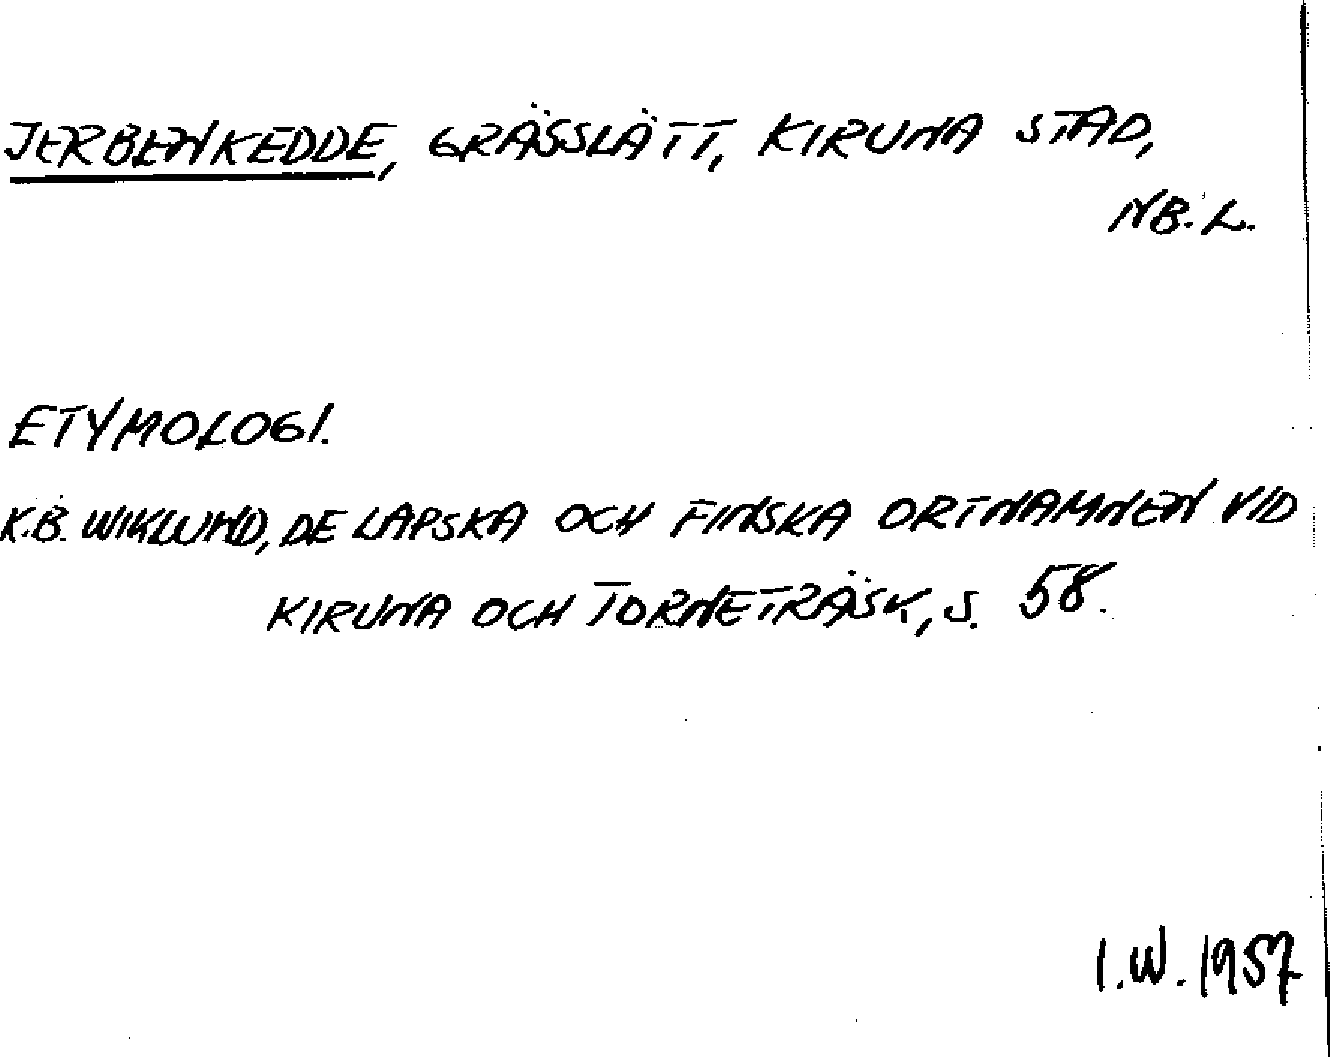 JERBENKEDDE, GRÄSSLÄTT, KIRUNA STAD,
NB. L.
ETYMOLOGI.
K.B. WIKLUND, DE LAPSKA OCH FINSKA ORTNAMNEN VID
KIRUNA OCH TORNETRÄSK, S. 58.
I.W. 1957